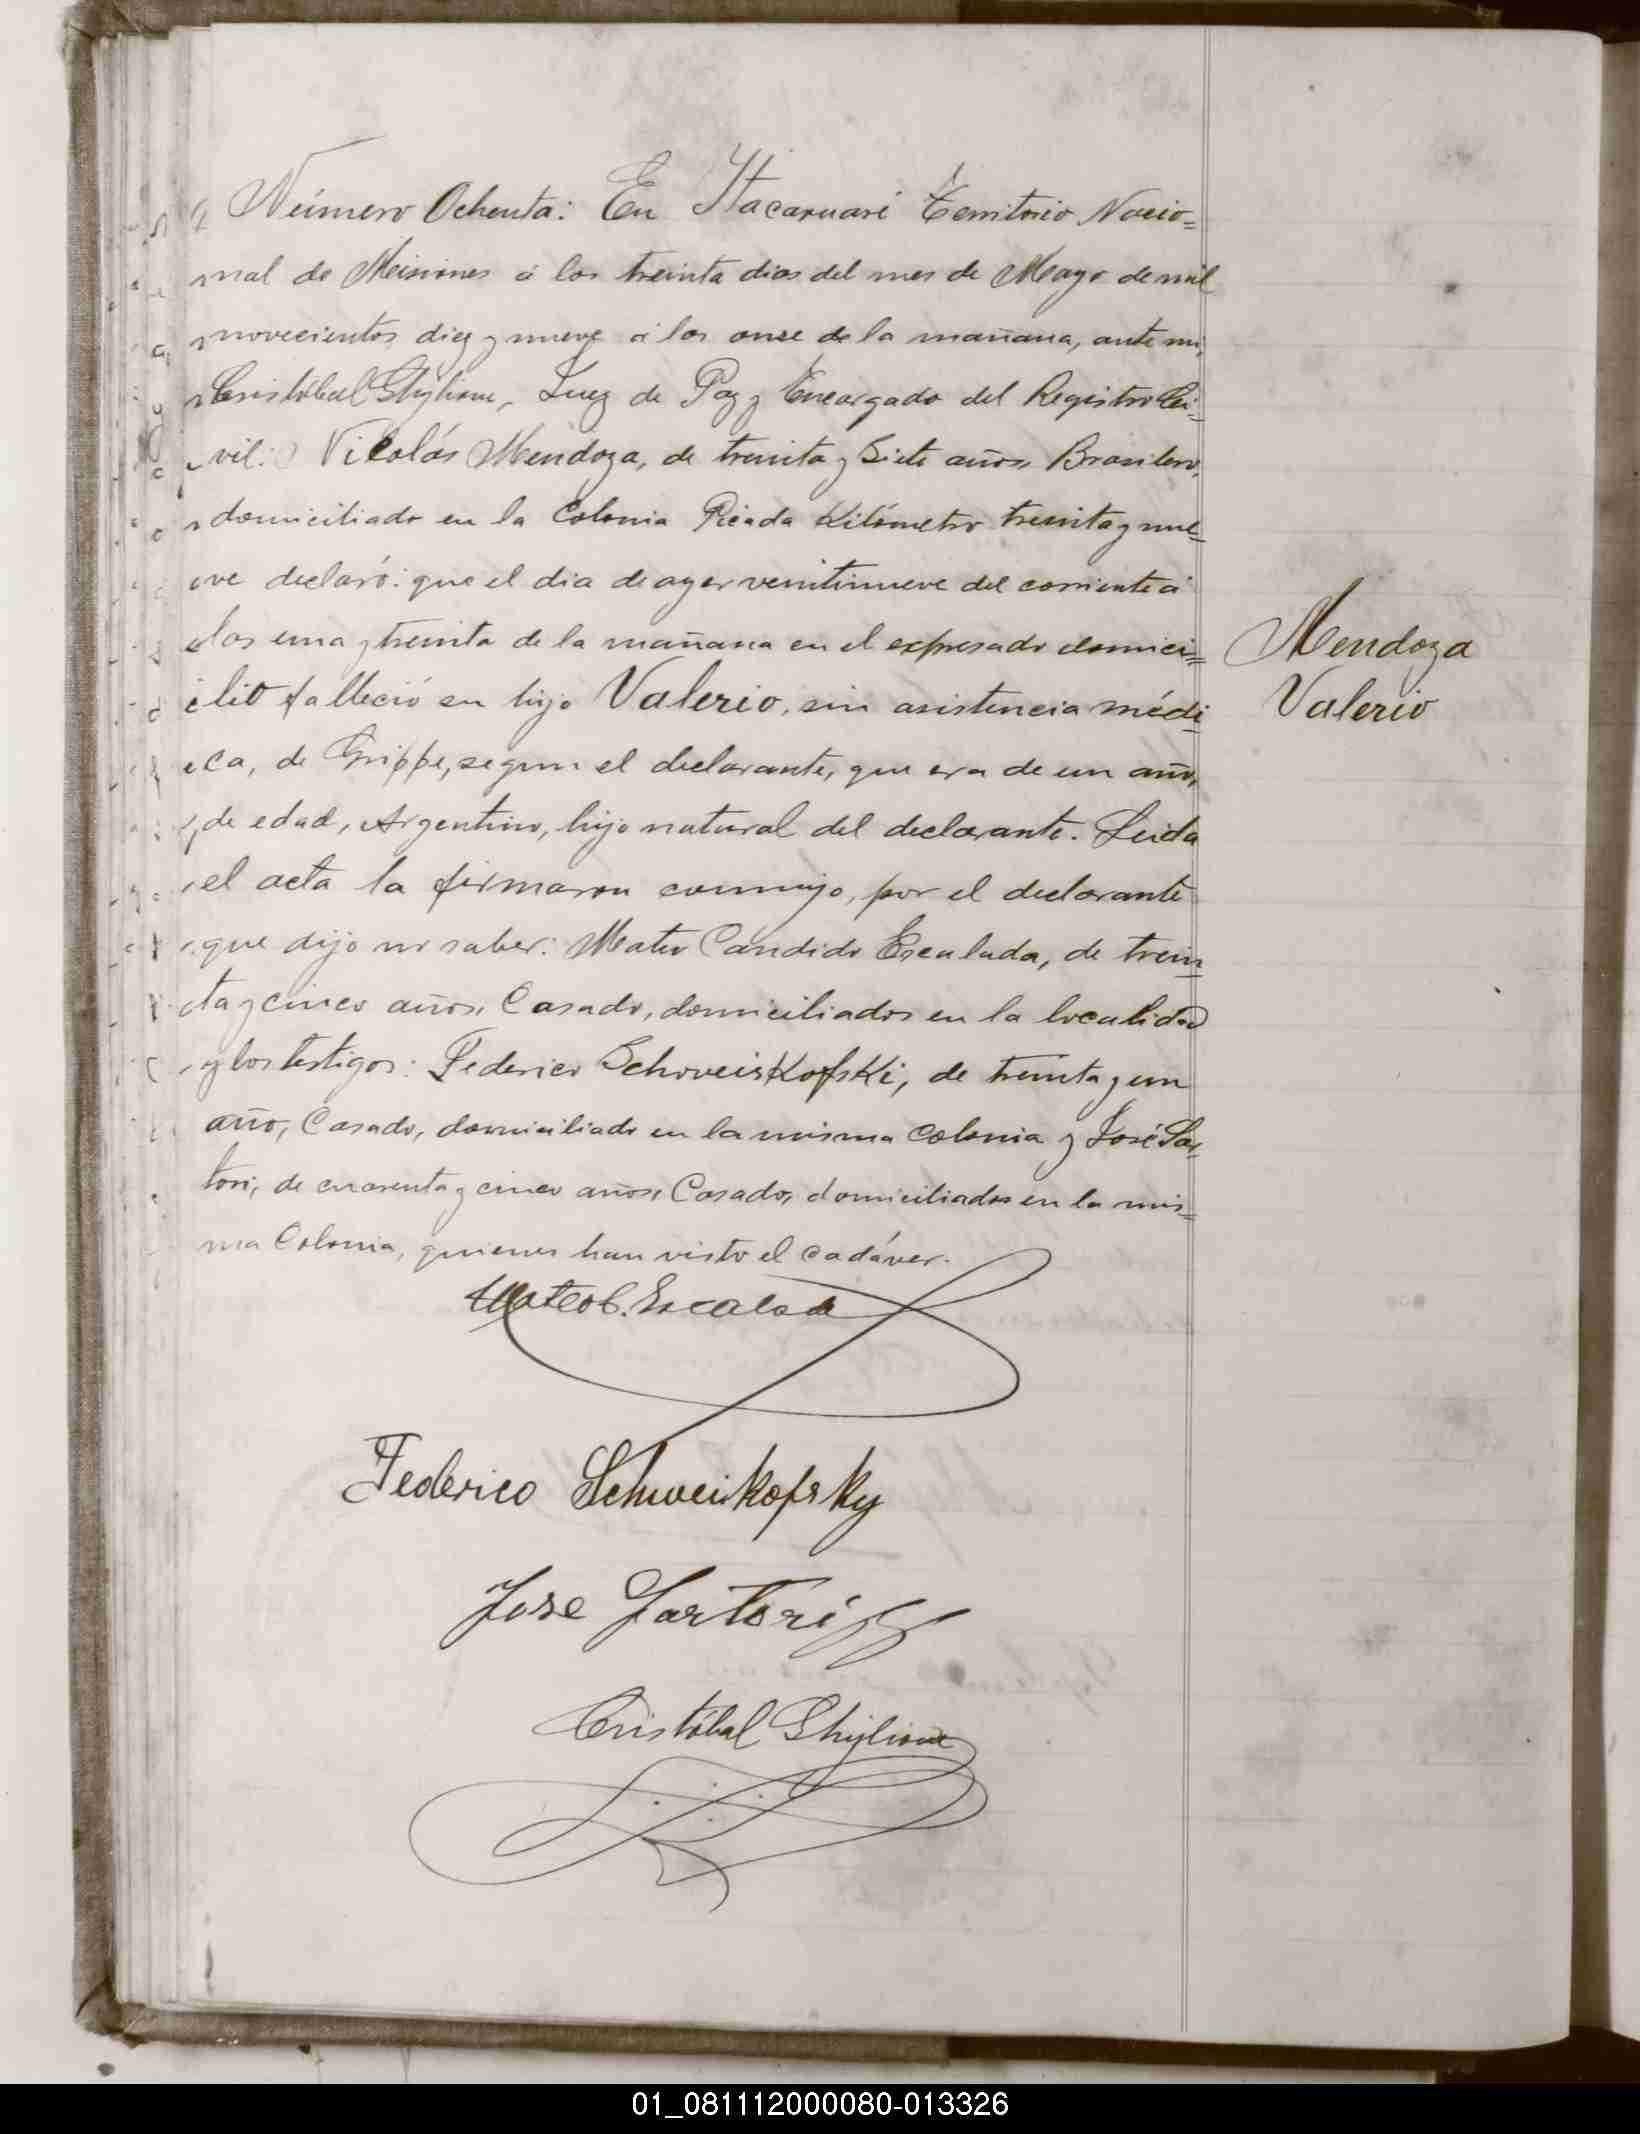 Número Ochenta: En Itacaruaré Territorio Nacio=
nal de Misiones á los treinta dias del mes de Mayo de mil
novecientos diez y nueve á las onse de la mañana, ante mi,
Cristóbal Ghiglione, Juez de Paz y Encargado del Registro Ci-
vil: Nicolás Mendoza, de treinta y Siete años, Brasilero,
domiciliado en la Colonia Picada Kilómetro treinta y nue=
ve declaró: que el dia de ayer veintinueve del corriente á
las una y treinta de la mañana en el expresado domici=
lio falleció su hijo Valerio, sin asistencia médi
ca, de Grippe, segun el declarante, que era de un año,
de edad, Argentino, hijo natural del declarante. Leida
el acta la firmaron conmigo, por el declarante
que dijo no saber: Mateo Candido Escalada, de trein
ta y cinco años, Casado, domiciliados en la localidad
y los testigos: Federico Schoveiskofski, de treinta y un
año, Casado, domiciliado en la misma Colonia y José Sar-
tori, de cuarenta y cinco años, Casado, domiciliados en la mis=
ma Colonia, quienes han visto el cadáver.
Mendoza
Valerio
Mateo C. Escalada
Federico Schweikofsky
Jose Sartori
Cristóbal Ghiglione
01_081112000080-013326